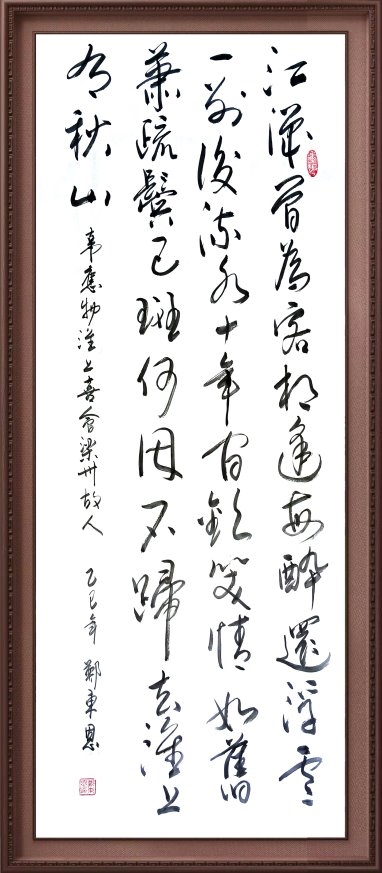 江漢曾為客相逢每醉還浮雲
一别後流水十年间歡笑情如舊
蕭疏鬢已斑何因不歸去淮上
有秋山
韋應物淮上喜會梁州故人 乙巳年 鄭東恩